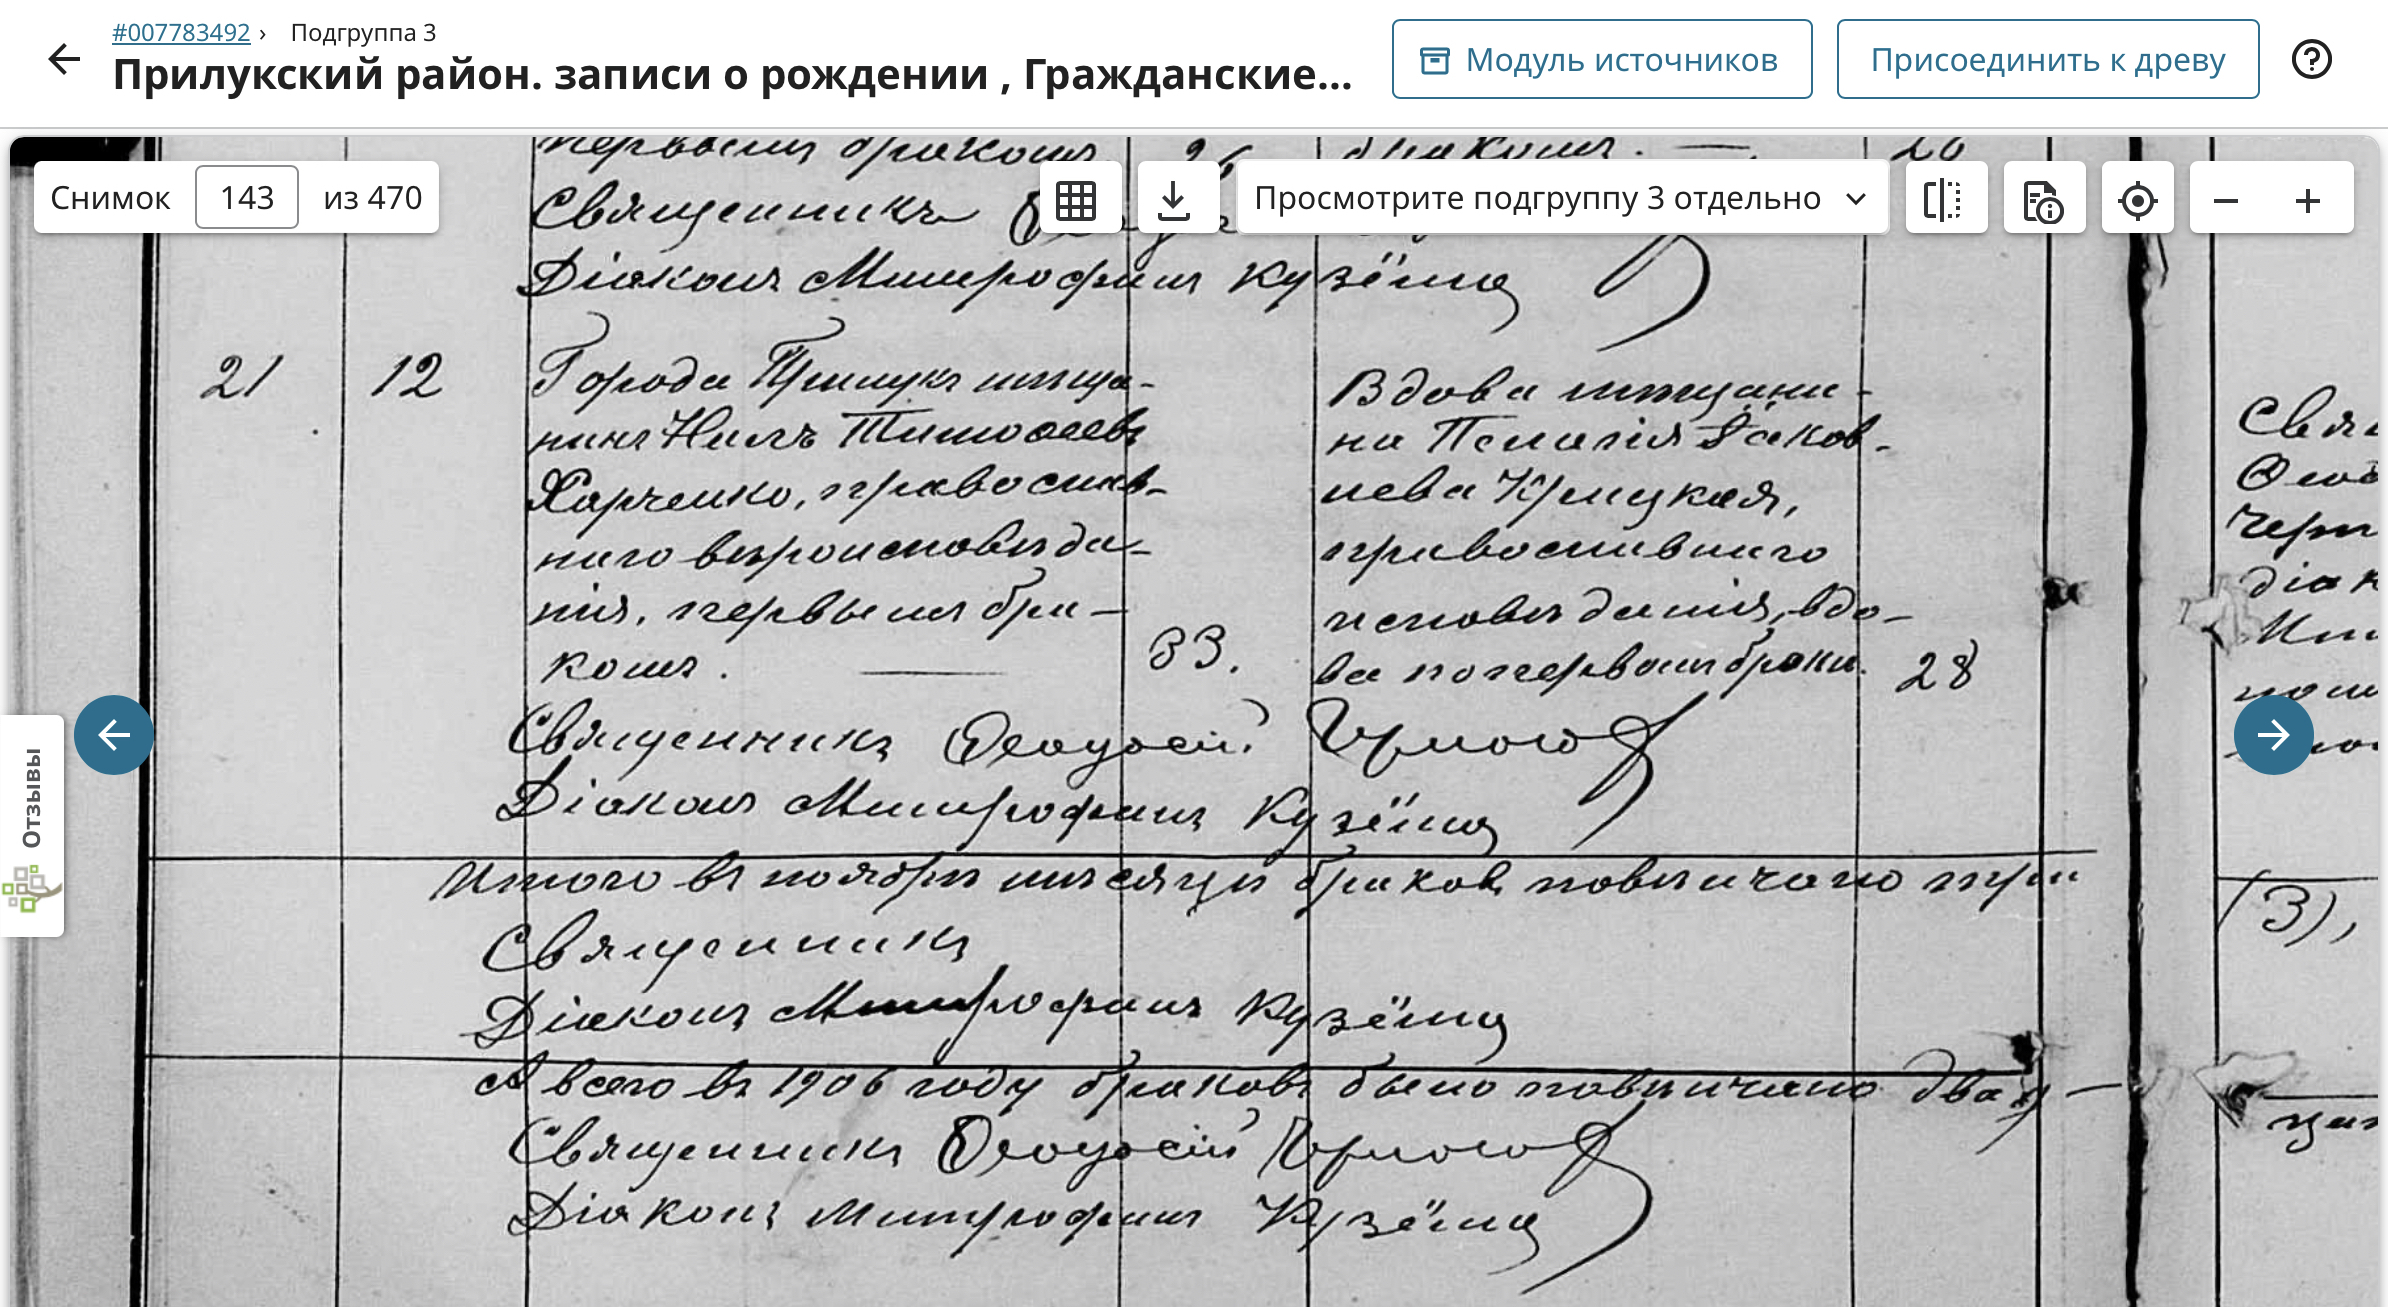 #007783492 › Подгруппа 3
Прилукский район. записи о рождении , Гражданские...
Модуль источников
Присоединить к древу
Снимок 143 из 470
Просмотрите подгруппу 3 отдельно
Отзывы
первымъ бракомъ. 26 бракомъ. — 20
Священникъ
Діаконъ Митрофанъ Кузёма
21 12
Города Прилукъ мѣща-
нинъ Нилъ Тимоѳеевъ
Харченко, православ-
наго вѣроисповѣда-
нія, первымъ бра-
комъ. — 33.
Вдова мѣщани-
на Пелагія Іаков-
лева Крицкая,
православнаго
исповѣданія, вдо-
ва по первомъ бракѣ. 28
Священникъ Ѳеодосій
Діаконъ Митрофанъ Кузёма
Итого въ ноябрѣ мѣсяцѣ браковъ повѣнчано три
Священникъ
Діаконъ Митрофанъ Кузёма
А всего въ 1906 году браковъ было повѣнчано двад-
Священникъ Ѳеодосій
Діаконъ Митрофанъ Кузёма
(3),